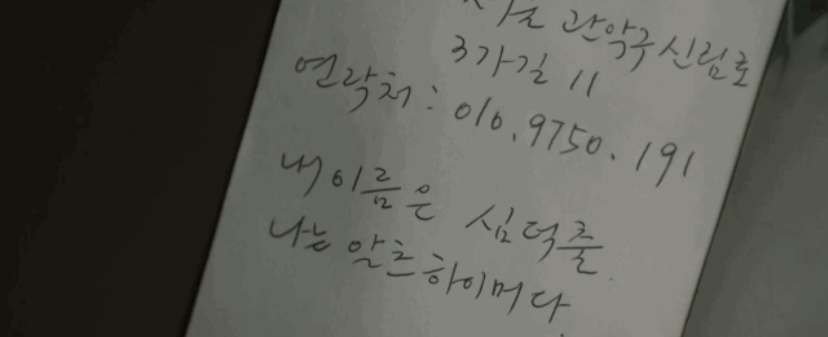 서울 관악구 신림로
3가길 11
연락처 : 010. 9750. 191
내 이름은 심덕출.
나는 알츠하이머다